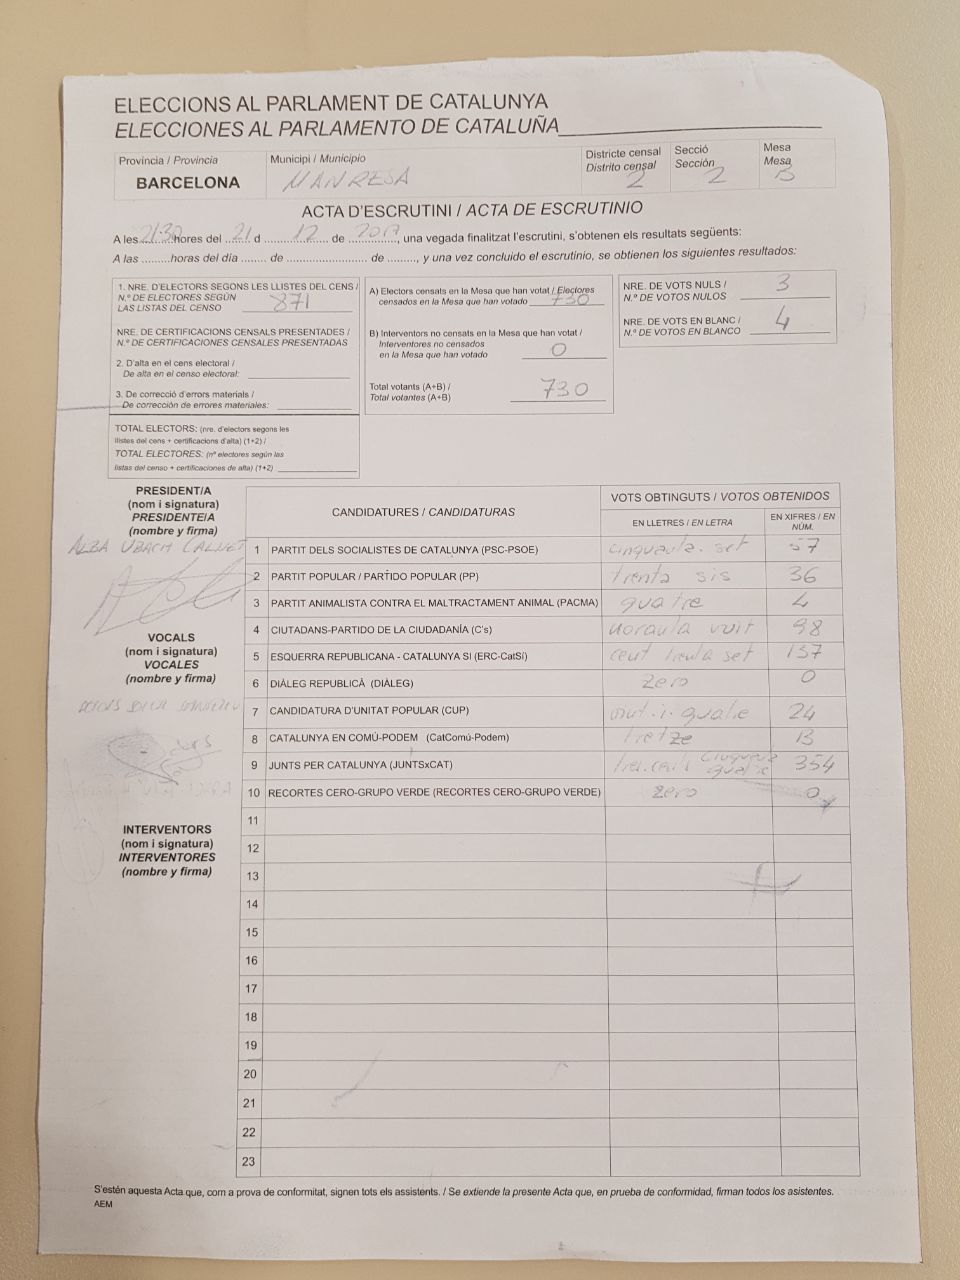 ELECCIONS AL PARLAMENT DE CATALUNYA
ELECCIONES AL PARLAMENTO DE CATALUÑA
Provincia / Provincia
BARCELONA
Municipi / Municipio
MANRESA
Districte censal
Distrito censal
2
Secció
Sección
2
Mesa
Mesa
B
ACTA D'ESCRUTINI / ACTA DE ESCRUTINIO
A les 21:30 hores del 21 d 12 de 2017, una vegada finalitzat l'escrutini, s'obtenen els resultats següents:
A las .........horas del día ........ de ........................ de ........., y una vez concluido el escrutinio, se obtienen los siguientes resultados:
1. NRE. D'ELECTORS SEGONS LES LLISTES DEL CENS /
N.º DE ELECTORES SEGÚN
LAS LISTAS DEL CENSO 871
NRE. DE CERTIFICACIONS CENSALS PRESENTADES /
N.º DE CERTIFICACIONES CENSALES PRESENTADAS
2. D'alta en el cens electoral /
De alta en el censo electoral:
3. De correcció d'errors materials /
De corrección de errores materiales:
TOTAL ELECTORS: (nre. d'electors segons les
llistes del cens + certificacions d'alta) (1+2) /
TOTAL ELECTORES: (nº electores según las
listas del censo + certificaciones de alta) (1+2)
A) Electors censats en la Mesa que han votat / Electores
censados en la Mesa que han votado 730
B) Interventors no censats en la Mesa que han votat /
Interventores no censados
en la Mesa que han votado 0
Total votants (A+B) /
Total votantes (A+B) 730
NRE. DE VOTS NULS /
N.º DE VOTOS NULOS 3
NRE. DE VOTS EN BLANC /
N.º DE VOTOS EN BLANCO 4
PRESIDENT/A
(nom i signatura)
PRESIDENTE/A
(nombre y firma)
ALBA UBACH CALVET
VOCALS
(nom i signatura)
VOCALES
(nombre y firma)
INTERVENTORS
(nom i signatura)
INTERVENTORES
(nombre y firma)
CANDIDATURES / CANDIDATURAS
VOTS OBTINGUTS / VOTOS OBTENIDOS
EN LLETRES / EN LETRA
EN XIFRES / EN NÚM.
1 PARTIT DELS SOCIALISTES DE CATALUNYA (PSC-PSOE) cinquanta-set 57
2 PARTIT POPULAR / PARTIDO POPULAR (PP) trenta sis 36
3 PARTIT ANIMALISTA CONTRA EL MALTRACTAMENT ANIMAL (PACMA) quatre 4
4 CIUTADANS-PARTIDO DE LA CIUDADANÍA (C's) noranta vuit 98
5 ESQUERRA REPUBLICANA - CATALUNYA SI (ERC-CatSí) cent trenta set 137
6 DIÀLEG REPUBLICÀ (DIÀLEG) zero 0
7 CANDIDATURA D'UNITAT POPULAR (CUP) vint-i-quatre 24
8 CATALUNYA EN COMÚ-PODEM (CatComú-Podem) tretze 13
9 JUNTS PER CATALUNYA (JUNTSxCAT) tres-cents cinquanta quatre 354
10 RECORTES CERO-GRUPO VERDE (RECORTES CERO-GRUPO VERDE) zero 0
11
12
13
14
15
16
17
18
19
20
21
22
23
S'estén aquesta Acta que, com a prova de conformitat, signen tots els assistents. / Se extiende la presente Acta que, en prueba de conformidad, firman todos los asistentes.
AEM